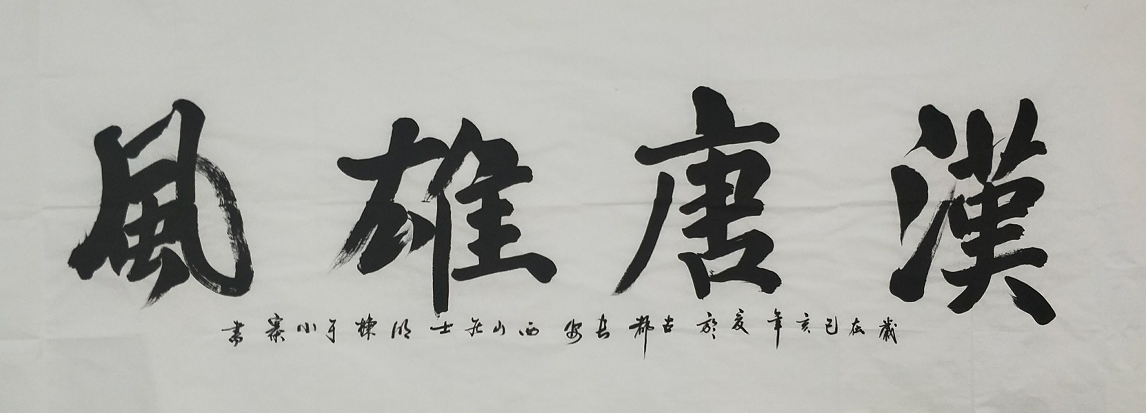 漢唐雄風
歲在己亥年夏於古都長安西山居士 棟于小寨書